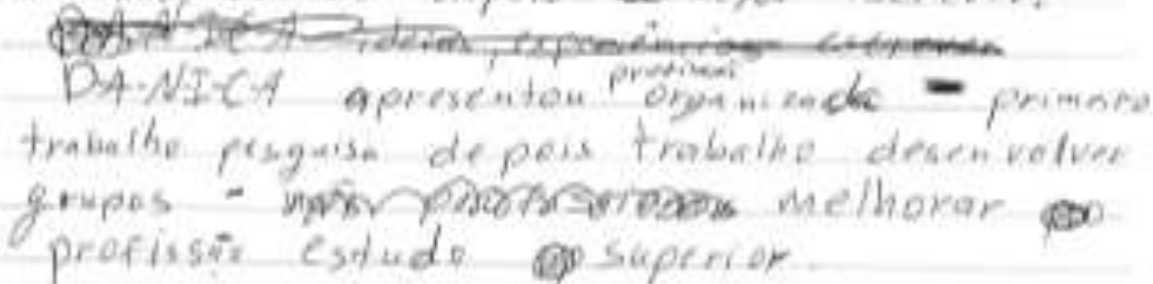 depois
D-A-N-I-C-A apresentou organizada - primeiro
trabalho pesquisa depois trabalho desenvolver
grupos - melhorar
profissão estudo superior.